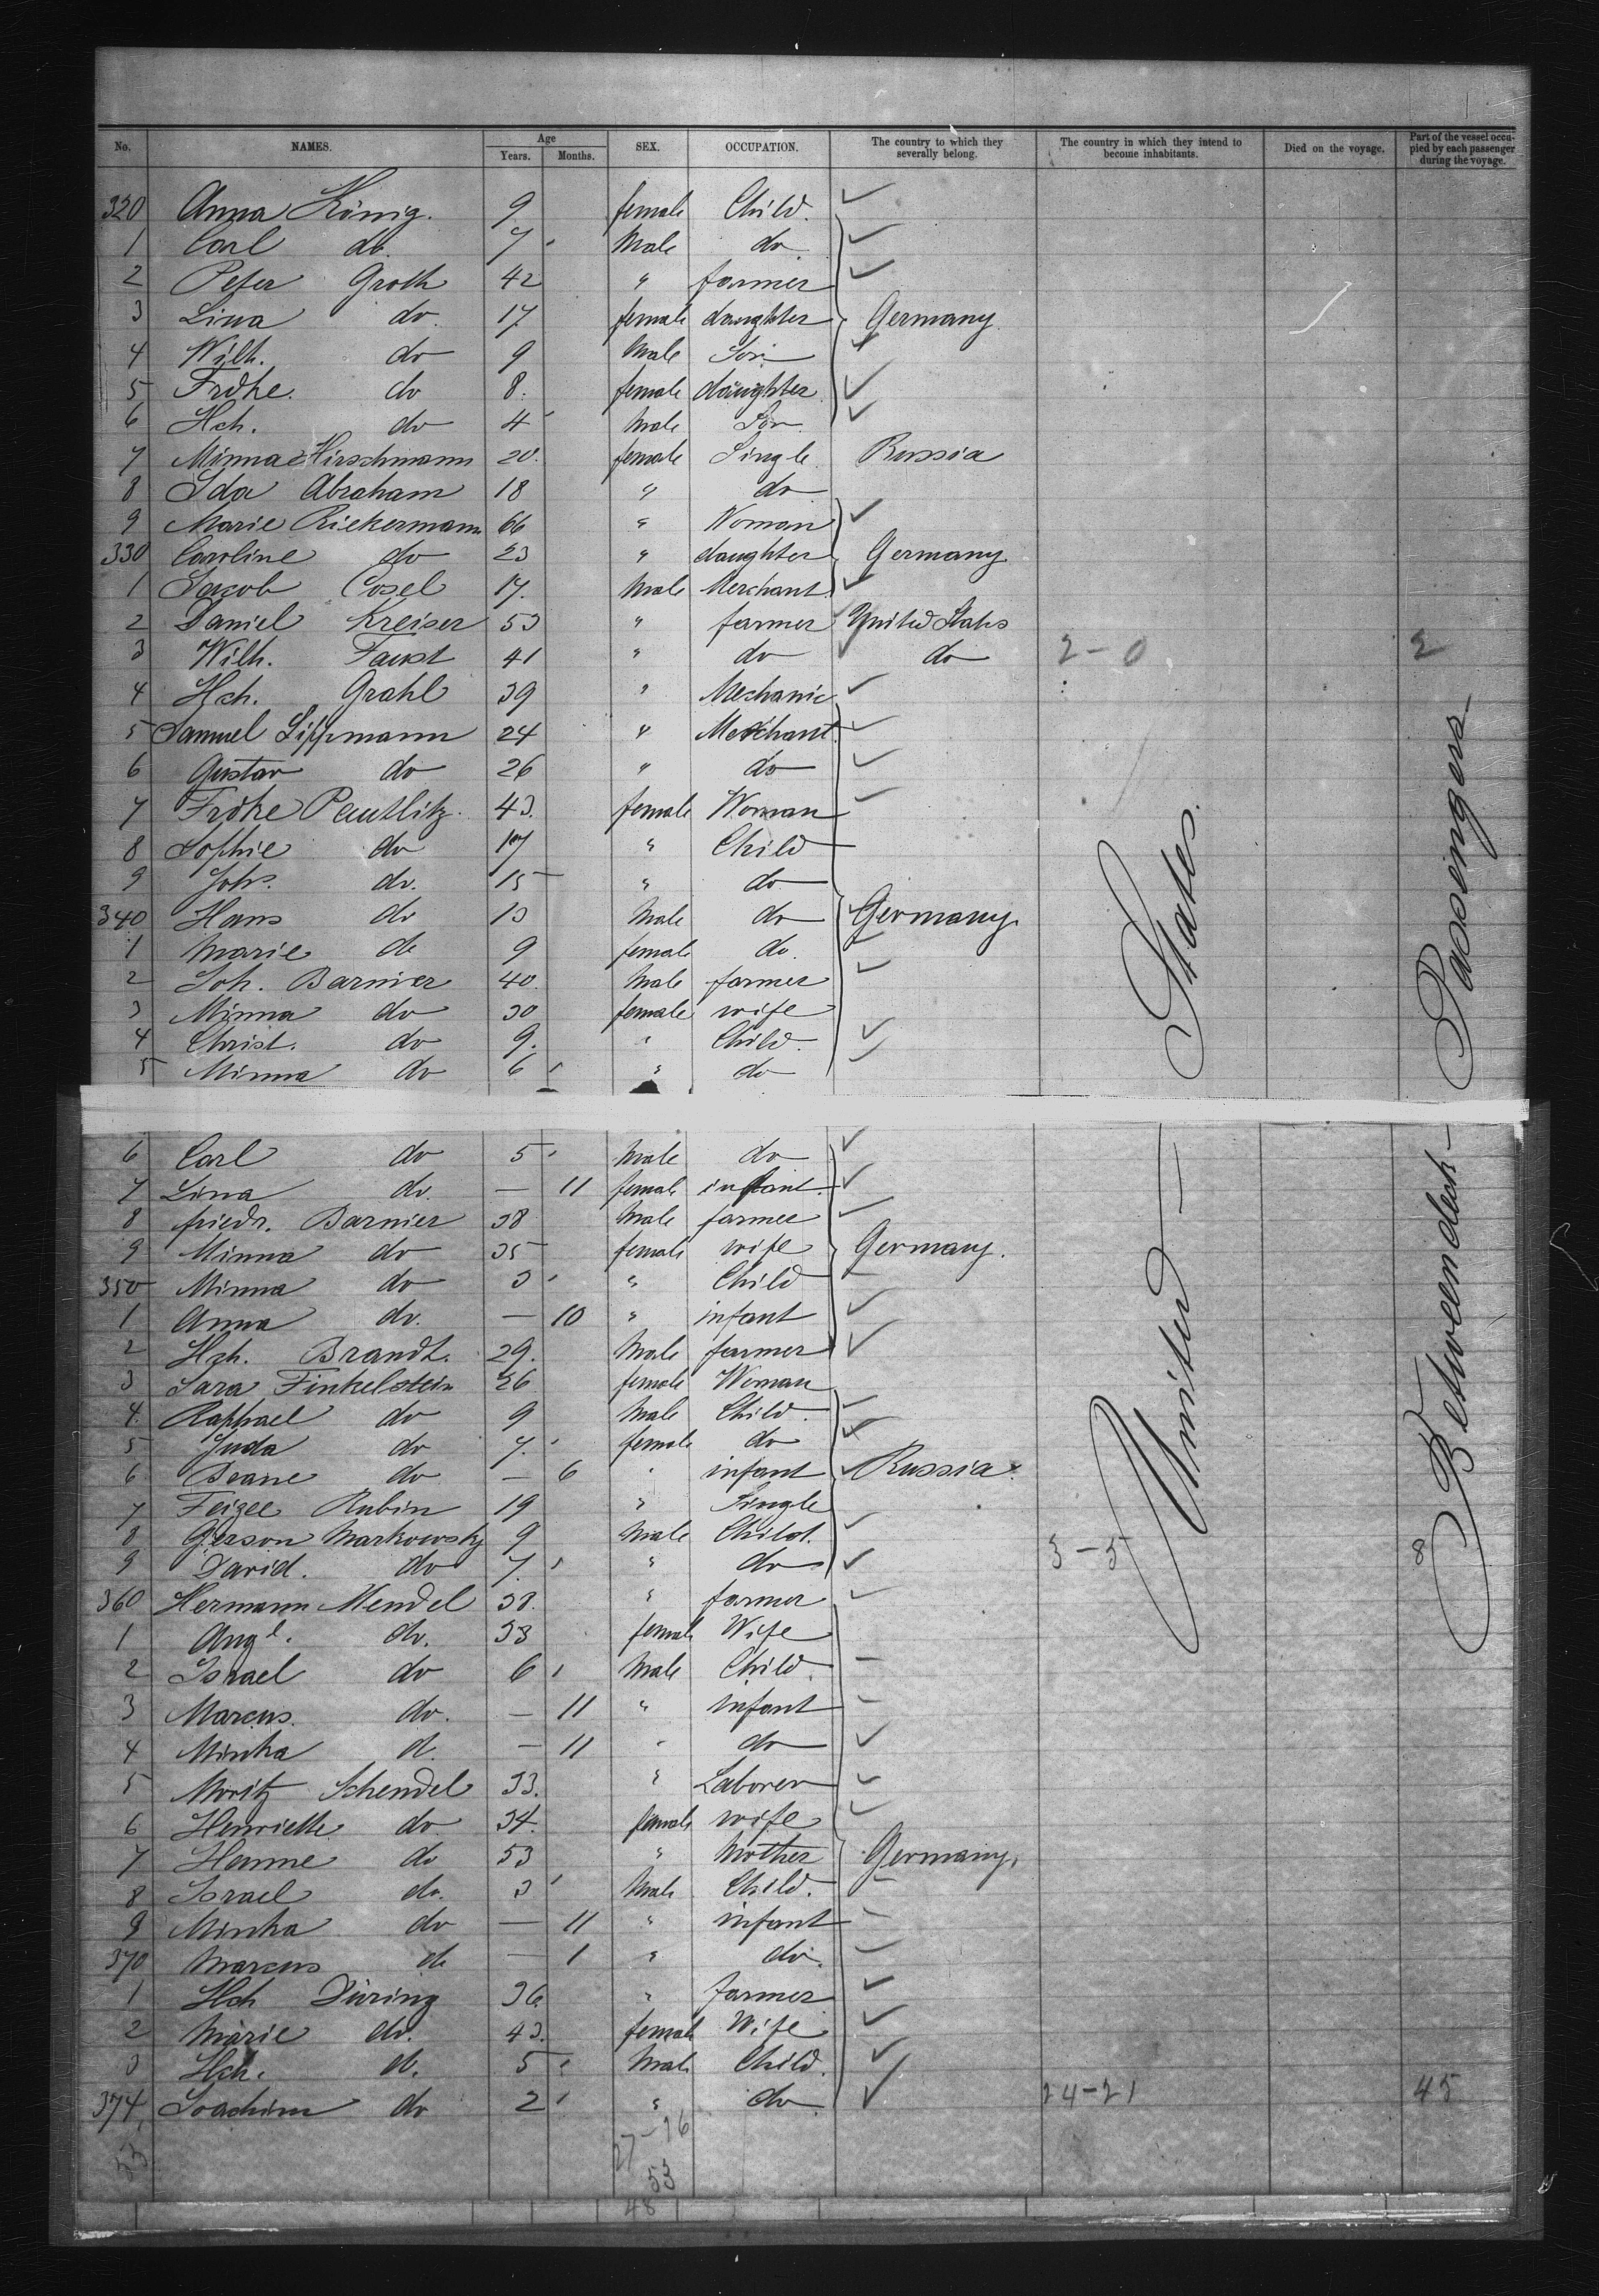 No. NAMES. Age Years. Months. SEX. OCCUPATION. The country to which they severally belong. The country in which they intend to become inhabitants. Died on the voyage. Part of the vessel occupied by each passenger during the voyage.
320 Anna König. 9 female Child.
1 Carl do. 7 Male do
2 Peter Groth 42 " farmer
3 Lina do. 17 female daughter Germany
4 Wilh. do 9 Male Son
5 Frdke. do 8. female daughter
6 Hch. do 4 Male Son
7 Minna Hirschmann 20. female Single Russia
8 Ida Abraham 18 " do
9 Marie Riekermann 66 " Woman
330 Caroline do 23 " daughter Germany
1 Jacob Cosel 17. Male Merchant
2 Daniel Kreiser 53 " farmer United States
3 Wilh. Faust 41 " do do 2-0 2
4 Hch. Grahl 39 " Mechanic
5 Samuel Lippmann 24 " Merchant
6 Gustav do 26 " do
7 Frdke Pentlitz. 43. female Woman
8 Sophie do 17 " Child
9 Johs. do. 15 " do
340 Hans do 13 Male do Germany
1 Marie do 9 female do.
2 Joh. Barnier 40. Male farmer
3 Minna do 30 female wife
4 Christ. do 9. " Child.
5 Minna do 6 " do
6 Carl do 5 Male do
7 Lina do. — 11 female infant
8 friedr. Barnier 38 Male farmer
9 Minna do 35 female wife Germany.
350 Minna do 3 " Child
1 Anna do. — 10 " infant
2 Hch. Brandt. 29. Male farmer
3 Sara Finkelstein 26 female Woman
4. Raphael do 9 Male Child.
5 Juda do 7. female do
6 Beane do — 6 " infant Russia.
7 Feizee Rubin 19 " Single
8 Gerson Markowsky 9 Male Child.
9 David. do 7. " do 3-5 8
360 Hermann Mendel 38. " farmer
1 Augl. do. 33 female Wife
2 Israel do 6 Male Child.
3 Marcus. do. — 11 " infant
4 Minka do. — 11 " do
5 Moritz Schendel 33. " Laborer
6 Henriette do 34. female wife
7 Hanne do 53 " Mother Germany.
8 Israel do. 3 Male Child.
9 Minka do — 11 " infant
370 Marcus do — 1 " do.
1 Hch Düring 36 " farmer
2 Marie do. 43. female Wife
3 Hch. do. 5 Male Child.
374 Joachim do 2 " do 24-21 45
United States.
Betweendeck Passengers
53
48